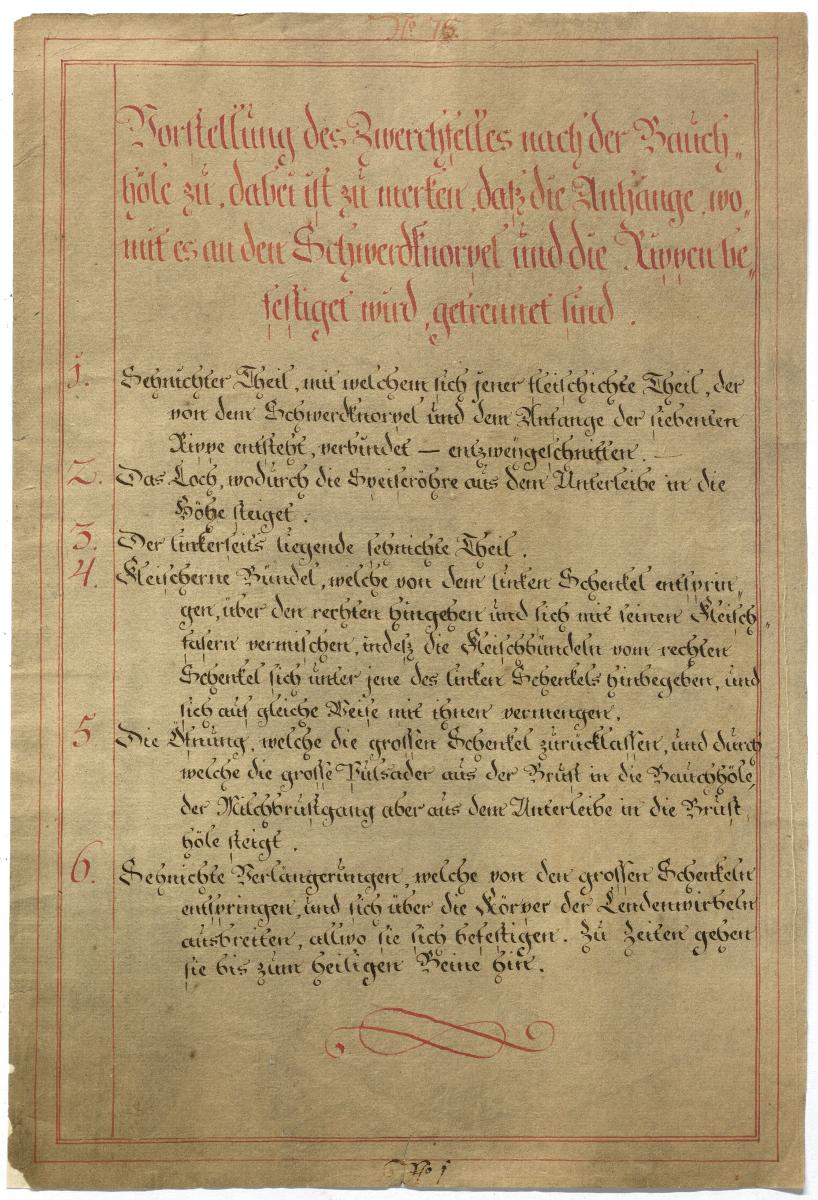 No 75.
Vorstellung des Zwerchfelles nach der Bauch„
höle zu, dabei ist zu merken, daß die Anhänge, wo„
mit es an den Schwerdknorpel und die Rippen be„
festiget wird, getrennet sind.
1. Sehnichter Theil, mit welchem sich jener fleischichte Theil, der
von dem Schwerdknorpel und dem Anfange der siebenten
Rippe entsteht, verbindet — entzweygeschnitten. —
2. Das Loch, wodurch die Speiseröhre aus dem Unterleibe in die
Höhe steiget.
3. Der linkerseits liegende sehnichte Theil.
4. Fleischerne Bündel, welche von dem linken Schenkel entsprin„
gen, über den rechten hingehen und sich mit seinen Fleisch„
fasern vermischen, indeß die Fleischbündeln vom rechten
Schenkel sich unter jene des linken Schenkels hinbegeben, und
sich auf gleiche Weise mit ihnen vermengen.
5 Die Öfnung, welche die grossen Schenkel zurücklassen, und durch
welche die grosse Pulsader aus der Brust in die Bauchhöle,
der Milchbrustgang aber aus dem Unterleibe in die Brust
höle steigt.
6. Sehnichte Verlängerungen, welche von den grossen Schenkeln
entspringen, und sich über die Körper der Lendenwirbeln
ausbreiten, allwo sie sich befestigen. Zu Zeiten gehen
sie bis zum heiligen Beine hin.
No 1